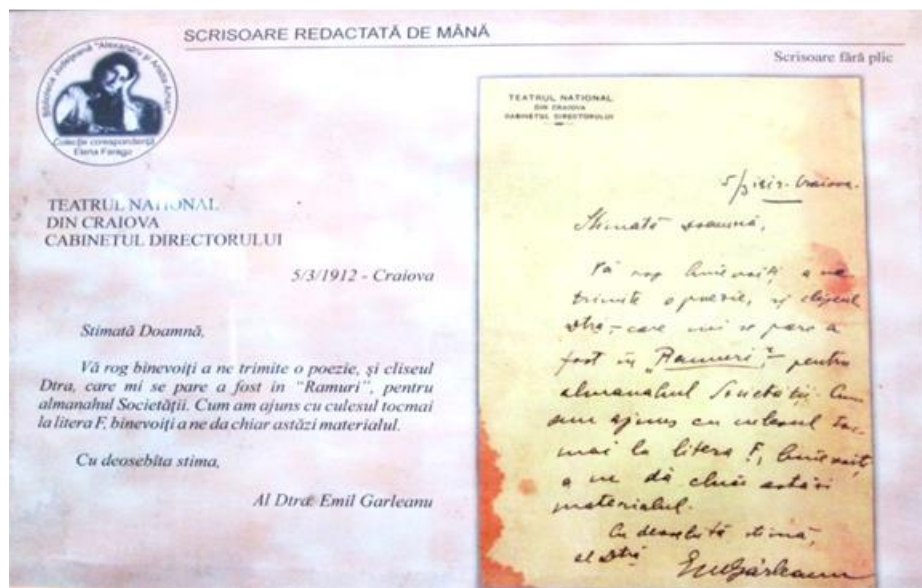 SCRISOARE REDACTATĂ DE MÂNĂ
Scrisoare fără plic
Biblioteca Județeană "Alexandru și Aristia Aman"
Colecție corespondență
Elena Farago
TEATRUL NATIONAL
DIN CRAIOVA
CABINETUL DIRECTORULUI
5/3/1912 - Craiova
Stimată Doamnă,
Vă rog binevoiți a ne trimite o poezie, și cliseul
Dtra, care mi se pare a fost in "Ramuri", pentru
almanahul Societății. Cum am ajuns cu culesul tocmai
la litera F, binevoiți a ne da chiar astăzi materialul.
Cu deosebîta stima,
Al Dtra: Emil Garleanu
TEATRUL NATIONAL
DIN CRAIOVA
CABINETUL DIRECTORULUI
5/3 1912 - Craiova.
Stimată Doamnă,
Vă rog binevoiți a ne
trimite o poezie, și clișeul
Dtră, care mi se pare a
fost in "Ramuri", pentru
almanahul Societății. Cum
am ajuns cu culesul toc-
mai la litera F, binevoiți
a ne dà chiar astăzi
materialul.
Cu deosebită stimă,
al Dtră
Em Gârleanu